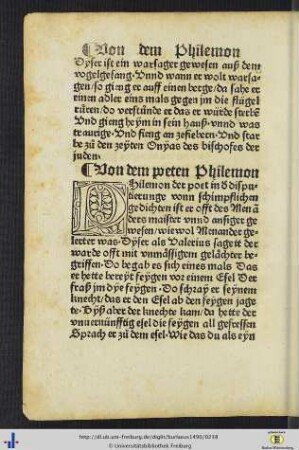 ¶Von dem Philemon
Dyser ist ein warsager gewesen auß dem
vogelgesang. Vnnd wann er wolt warsa-
gen/so gieng er auff einen berge/da sahe er
einen adler eins mals gegen jm die flügel
rüren/do verstůnde er das er würde sterbē
Vnd gieng heym in sein hauß. vnnd was
traurige. Vnd fieng an zefiebern. Vnd star
be zů den zeyten Onyas des bischofes der
juden.
¶Von dem peten Philemon
Philemon der poet in ð dispu-
tierunge vonn schimpflichen
gedichten ist er offt des Menā
ders maister vnnd ansiger ge
wesen/wiewol Menander ge-
lerter was. Dyser als Valerius saget der
warde offt mit vnmässigem gelächter be-
griffen. Do begab es sich eines mals Das
er hette bereyt feygen vor einem Esel Der
fraß jm dye feygen. Do schray er seynem
knecht/das er den Esel ab den feygen jage
te. Dyß aber der knechte kam/da hette der
vnuernünfftig esel die feygen all gefressen
Sprach er zů dem esel. Wie das du als eyn
http://dl.ub.uni-freiburg.de/diglit/burlaeus1490/0218
© Universitätsbibliothek Freiburg